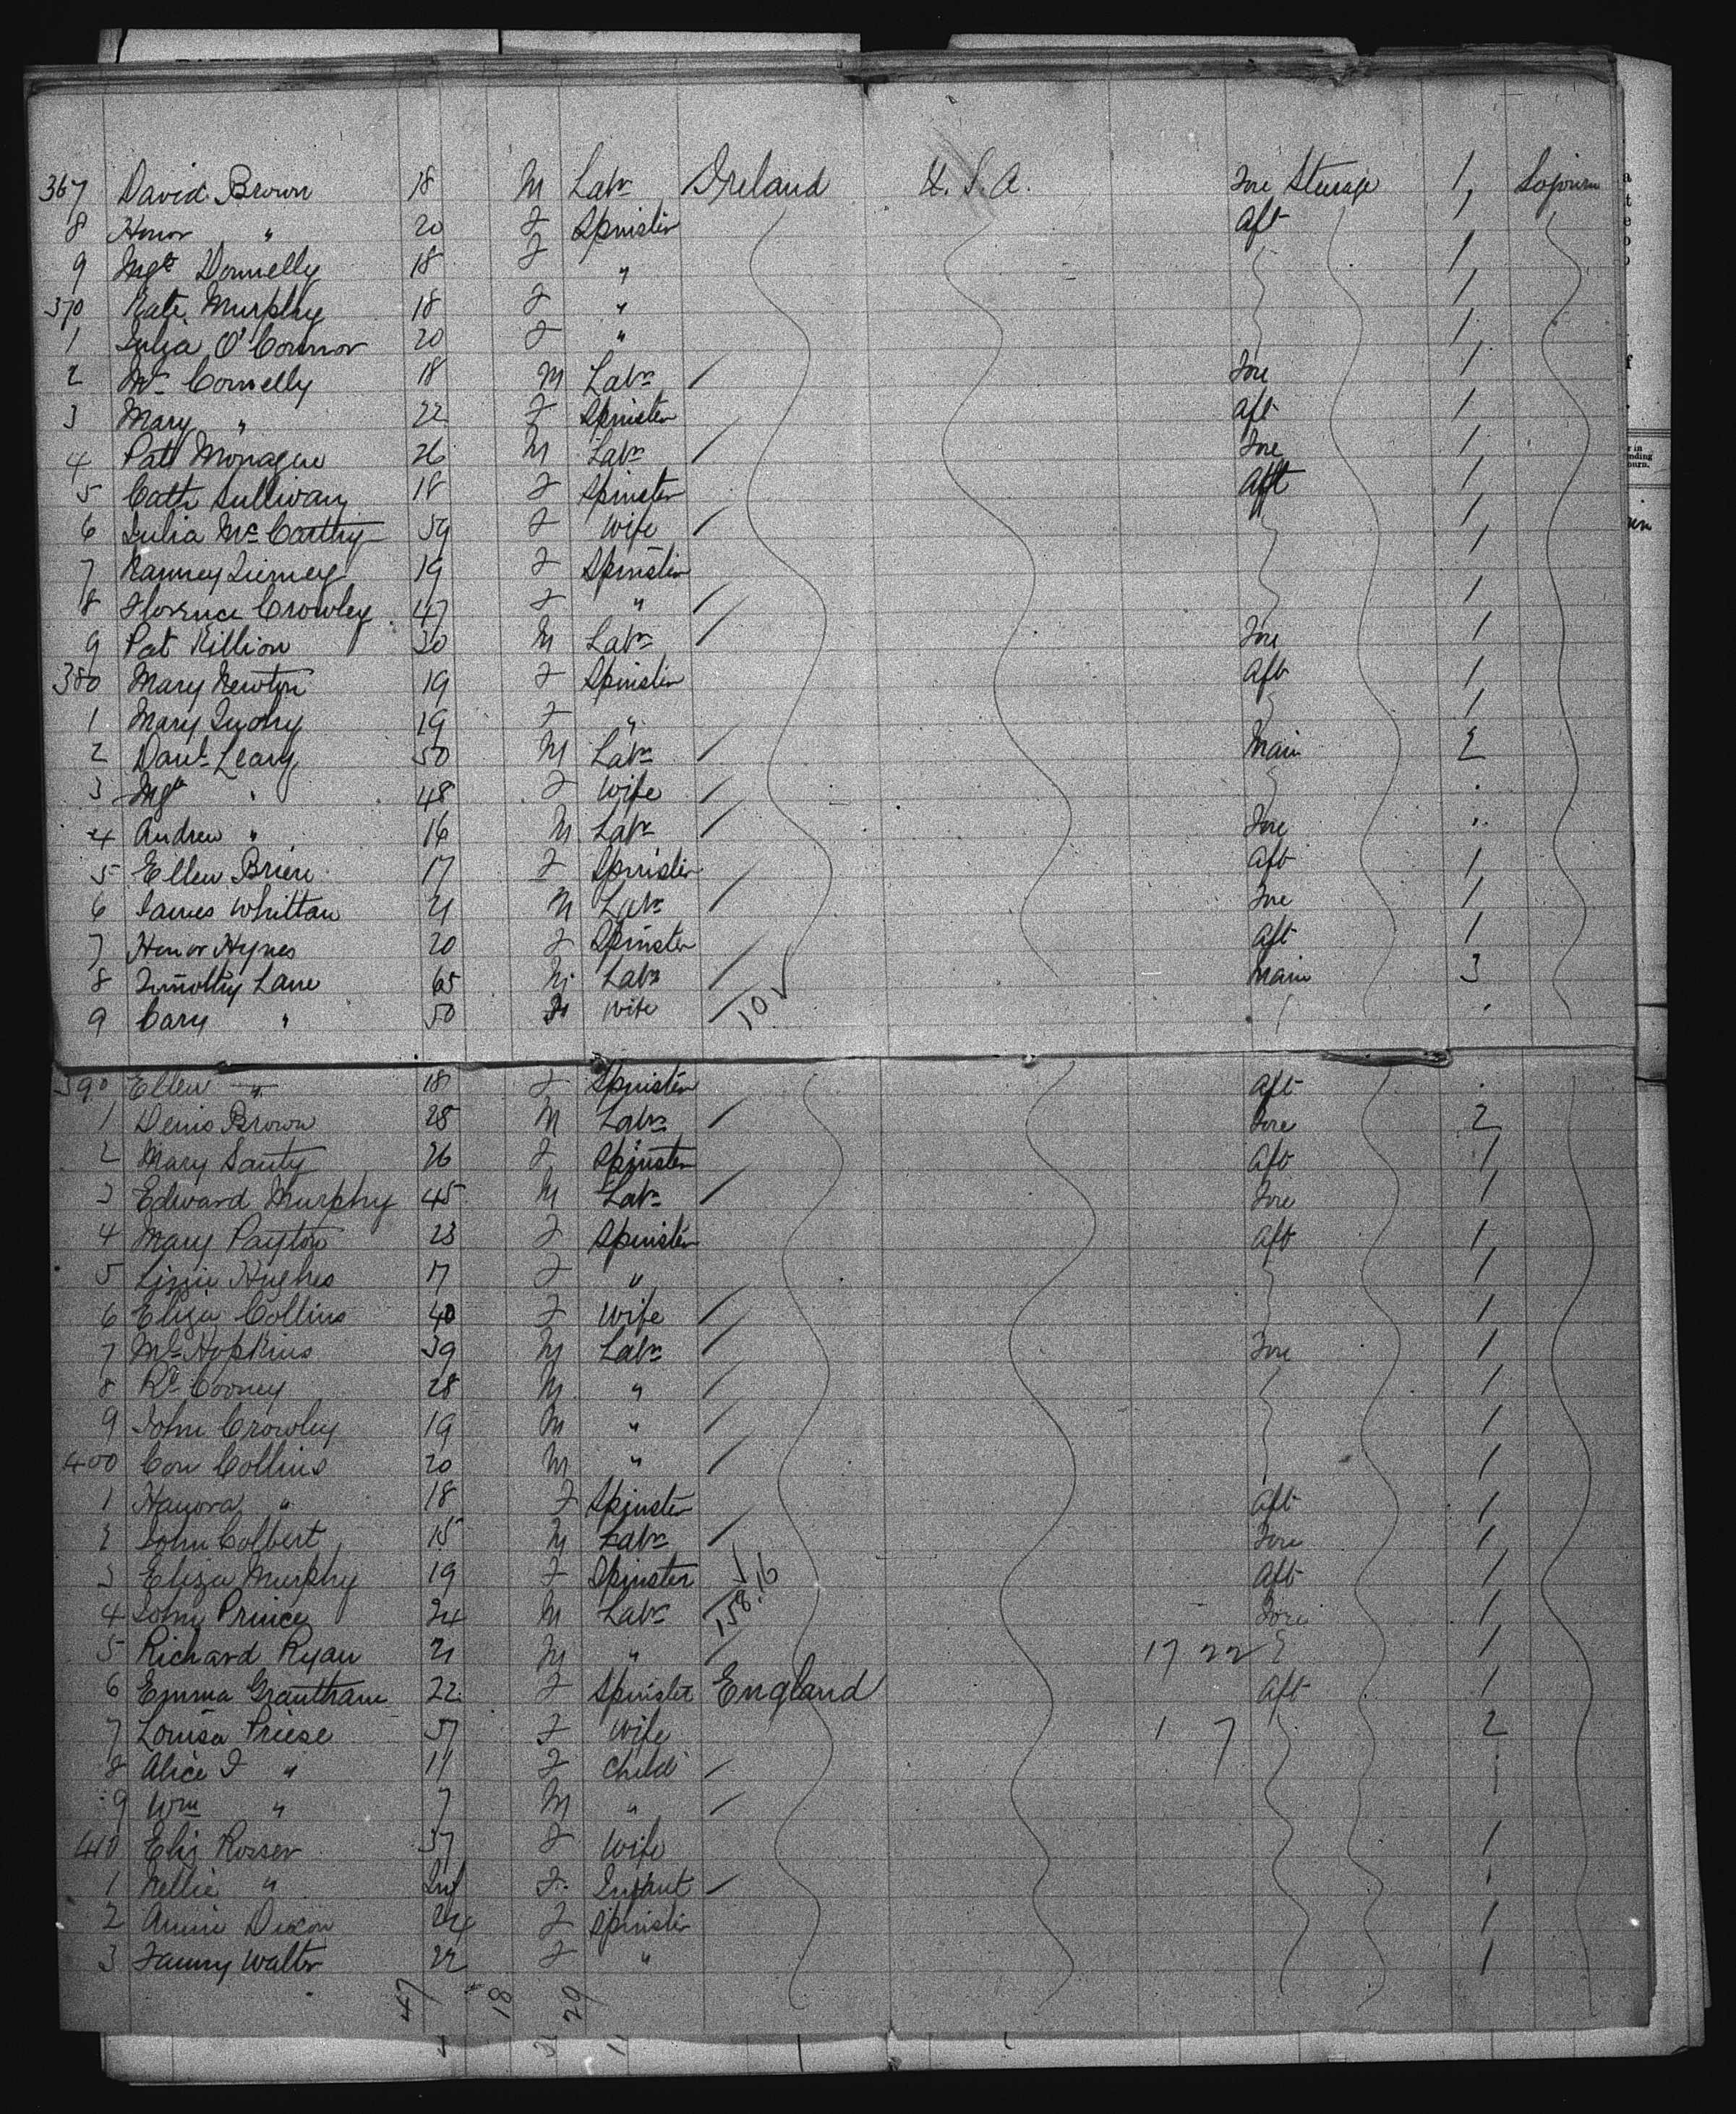 367 David Brown 18 M Labr Ireland U.S.A. Fore Steerage 1, Sojourn
8 Honor " 20 F Spinster Aft 1
9 Mgt Donnelly 18 F " 1,
370 Kate Murphy 18 F " 1,
1 Julia O'Connor 20 F " 1,
2 Ml Connelly 18 M Labr / Fore 1
3 Mary " 22 F Spinster Aft 1
4 Patt Monagan 26 M Labr / Fore 1
5 Cath Sullivan 18 F Spinster Aft 1
6 Julia McCarthy 59 F Wife / 1,
7 Tierney 19 F Spinster 1,
8 Florence Crowley 47 F " / 1
9 Pat Killion 30 M Labr / Fore 1
380 Mary Newton 19 F Spinster Aft 1
1 Mary 19 F " 1
2 Danl Leary 50 M Labr / Main 2
3 Mgt " 48 F Wife / .
4 Andrew " 16 M Labr / Fore "
5 Ellen Brien 17 F Spinster Aft 1,
6 James Whittan 21 M Labr / Fore 1
7 Honor Hynes 20 F Spinster Aft 1
8 Timothy Lane 65 M Labr / Main 3
9 Cary " 50 Wife / 10 .
390 Ellen " 18 F Spinster Aft .
1 Denis Brown 28 M Labr / Fore 2
2 Mary Santy 26 F Spinster Aft 1
3 Edward Murphy 45 M Labr / Fore 1
4 Mary Payton 23 F Spinster Aft 1,
5 Lizzie Hughes 17 F " 1
6 Eliza Collins 40 F Wife / 1
7 Ml Hopkins 39 M Labr / Fore 1
8 Rd Cooney 28 M " / 1
9 John Crowley 19 M " / 1
400 Con Collins 20 M " / 1
1 Hanora " 18 F Spinster Aft 1
2 John Colbert 15 M Labr / Fore 1
3 Eliza Murphy 19 F Spinster Aft 1
4 John Prince 24 M Labr 158.16 Fore 1
5 Richard Ryan 21 M " / 17 22 1
6 Emma Grantham 22 F Spinster England Aft 1
7 Louisa Priese 37 F Wife 1 7 2
8 Alice I " 11 F Child /
9 Wm " 7 M " /
410 Eliz Rosser 37 F Wife 1
1 Nellie " Inf F Infant /
2 Annie Dixon 24 F Spinster 1
3 Fanny Walter 22 F " 1
47 18 29